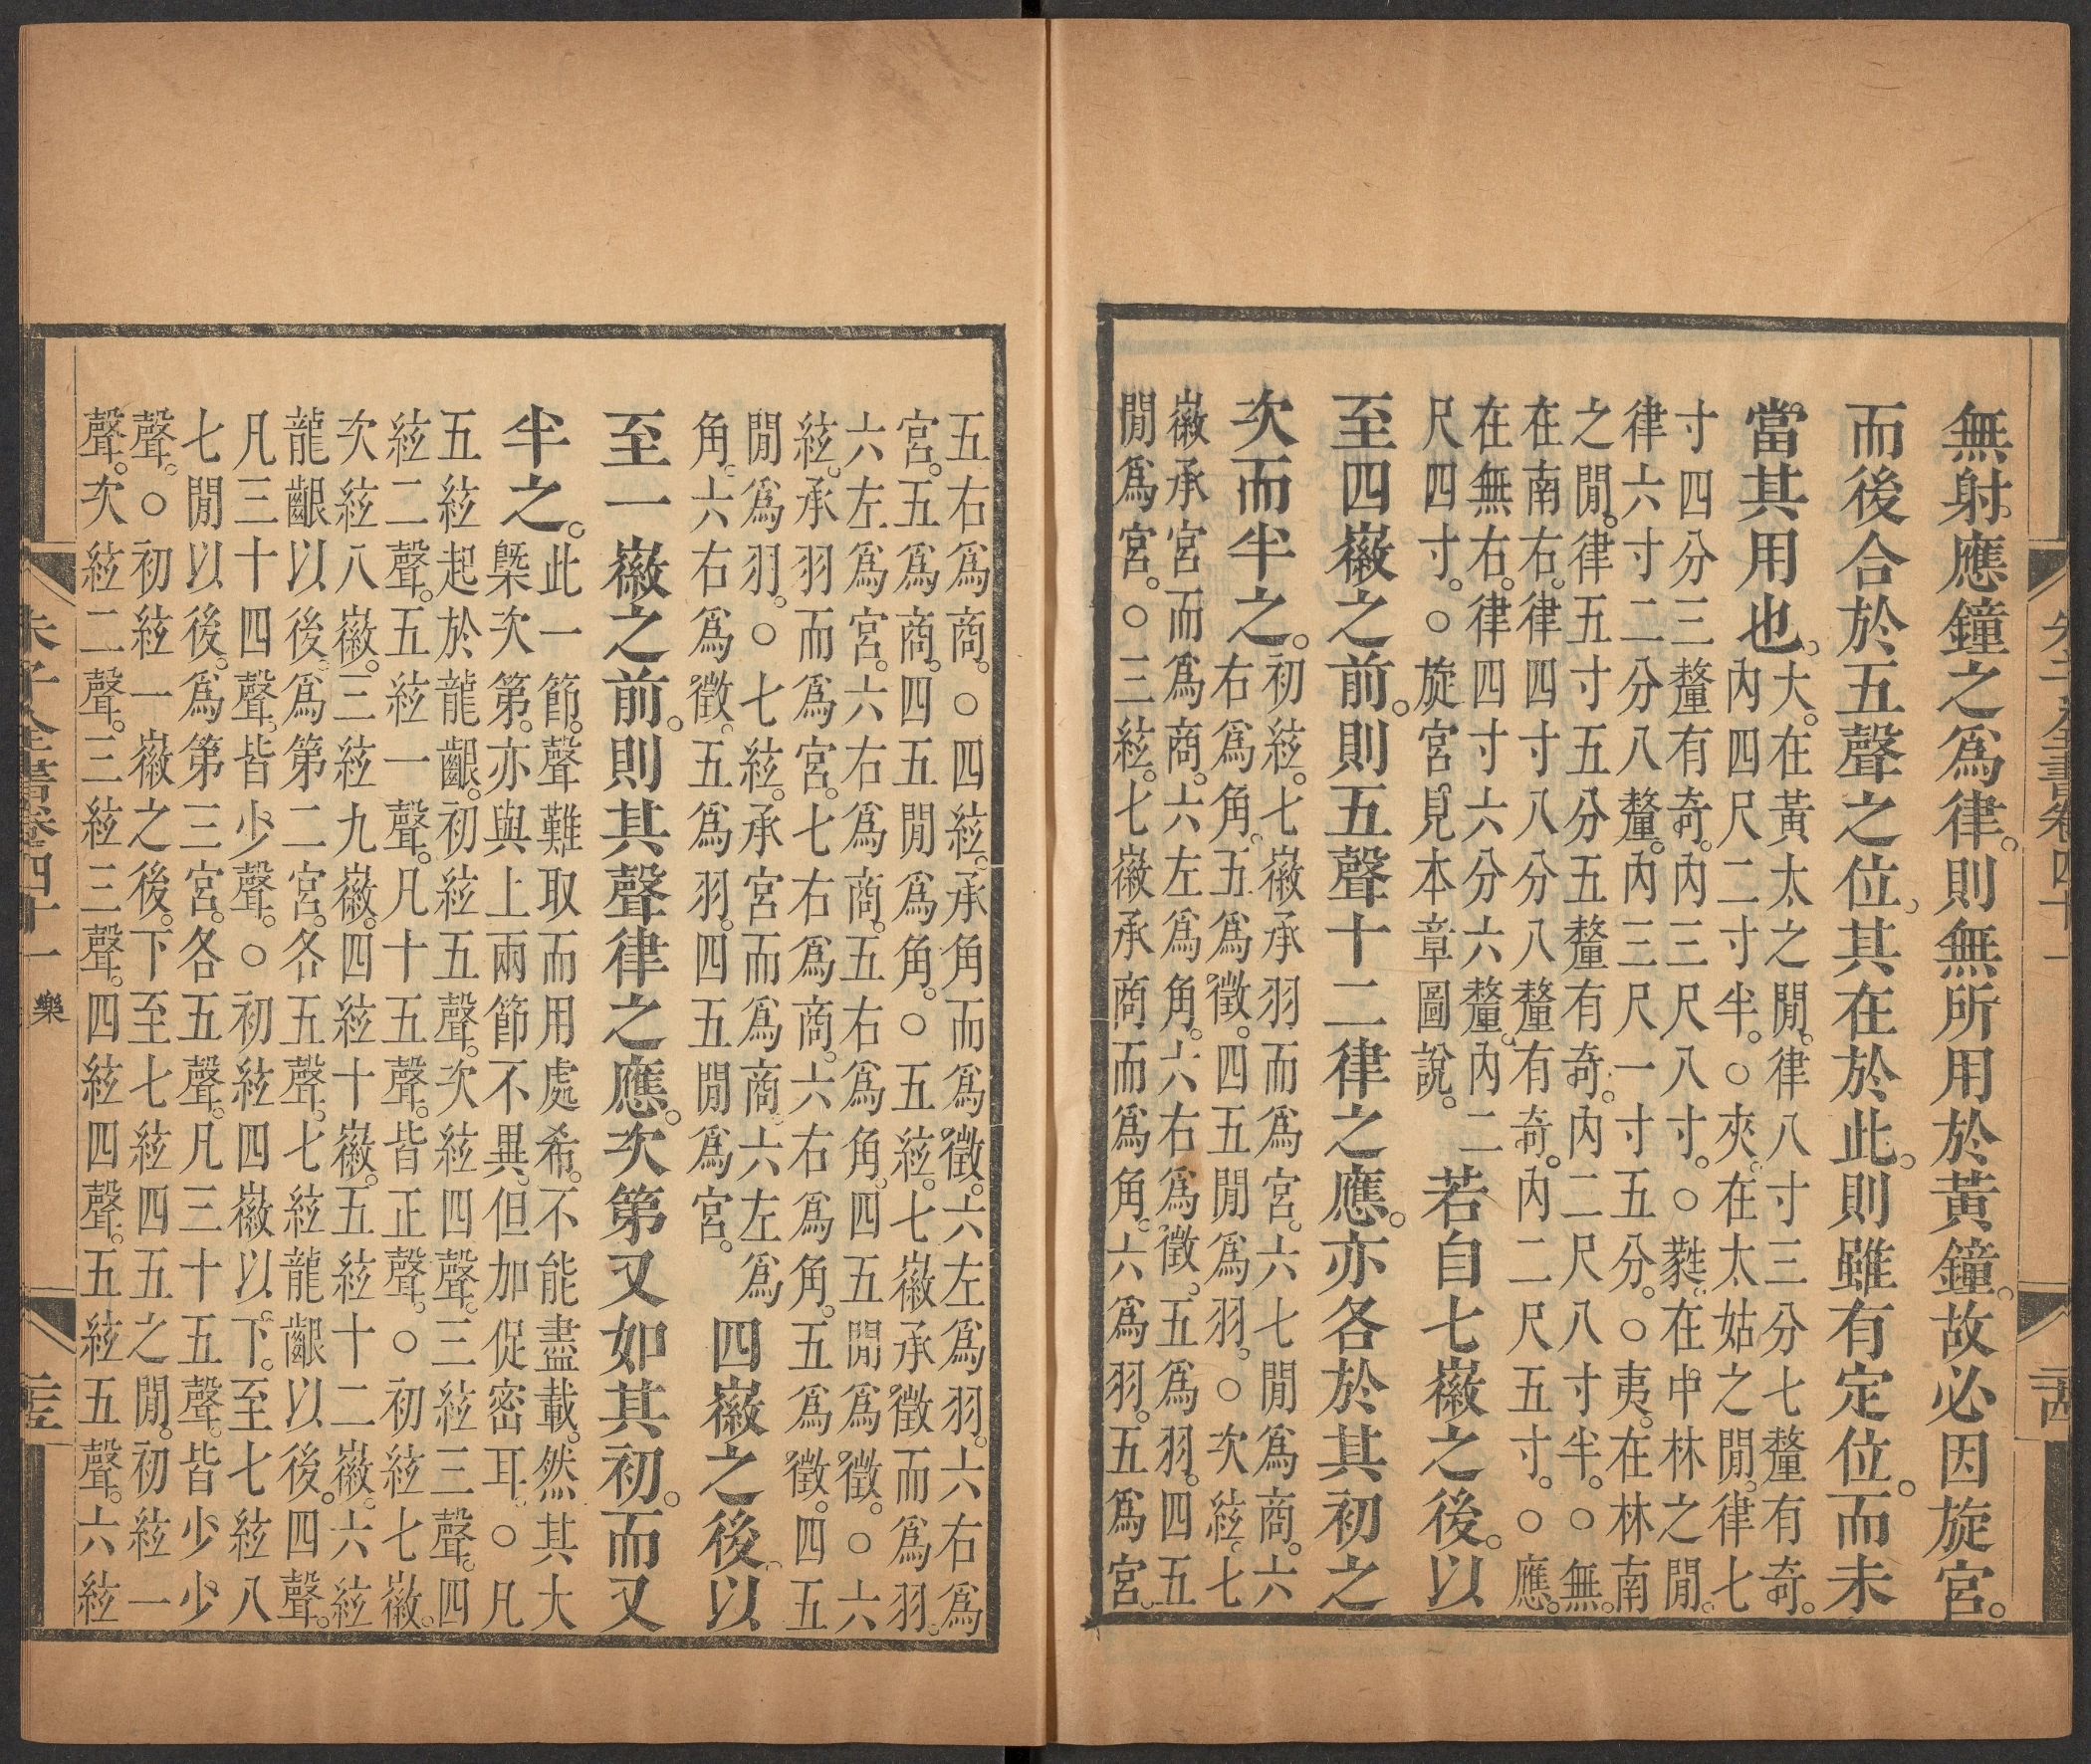 無射。應鐘之爲律。則無所用於黃鐘。故必因旋宮。
而後合於五聲之位。其在於此。則雖有定位。而未
當其用也。
大。在黃太之閒。律八寸三分七釐有奇。
內四尺二寸半。○夾。在太姑之閒。律七
寸四分三釐有奇。內三尺八寸。○蕤。在中林之閒。
律六寸二分八釐。內三尺一寸五分。○夷。在林南
之閒。律五寸五分五釐有奇。內二尺八寸半。○無。
在南右。律四寸八分八釐有奇。內二尺五寸。○應。
在無右。律四寸六分六釐。內二
尺四寸。○旋宮見本章圖說。
若自七徽之後。以
至四徽之前。則五聲十二律之應。亦各於其初之
次而半之。
初絃。七徽承羽而爲宮。六七閒爲商。六
右爲角。五爲徵。四五閒爲羽。○次絃。七
徽承宮而爲商。六左爲角。六右爲徵。五爲羽。四五
閒爲宮。○三絃。七徽承商而爲角。六爲羽。五爲宮。
五右爲商。○四絃。承角而爲徵。六左爲羽。六右爲
宮。五爲商。四五閒爲角。○五絃。七徽承徵而爲羽。
六左爲宮。六右爲商。五右爲角。四五閒爲徵。○六
絃。承羽而爲宮。七右爲商。六右爲角。五爲徵。四五
閒爲羽。○七絃。承宮而爲商。六左爲
角。六右爲徵。五爲羽。四五閒爲宮。
四徽之後。以
至一徽之前。則其聲律之應。次第又如其初。而又
半之。
此一節。聲難取而用處希。不能盡載。然其大
槩次第。亦與上兩節不異。但加促密耳。○凡
五絃起於龍齦。初絃五聲。次絃四聲。三絃三聲。四
絃二聲。五絃一聲。凡十五聲。皆正聲。○初絃七徽。
次絃八徽。三絃九徽。四絃十徽。五絃十二徽。六絃
龍齦以後。爲第二宮。各五聲。七絃龍齦以後。四聲。
凡三十四聲。皆少聲。○初絃四徽以下。至七絃八
七閒以後。爲第三宮。各五聲。凡三十五聲。皆少少
聲。○初絃一徽之後。下至七絃四五之閒。初絃一
聲。次絃二聲。三絃三聲。四絃四聲。五絃五聲。六絃
朱子全書卷四十一 樂